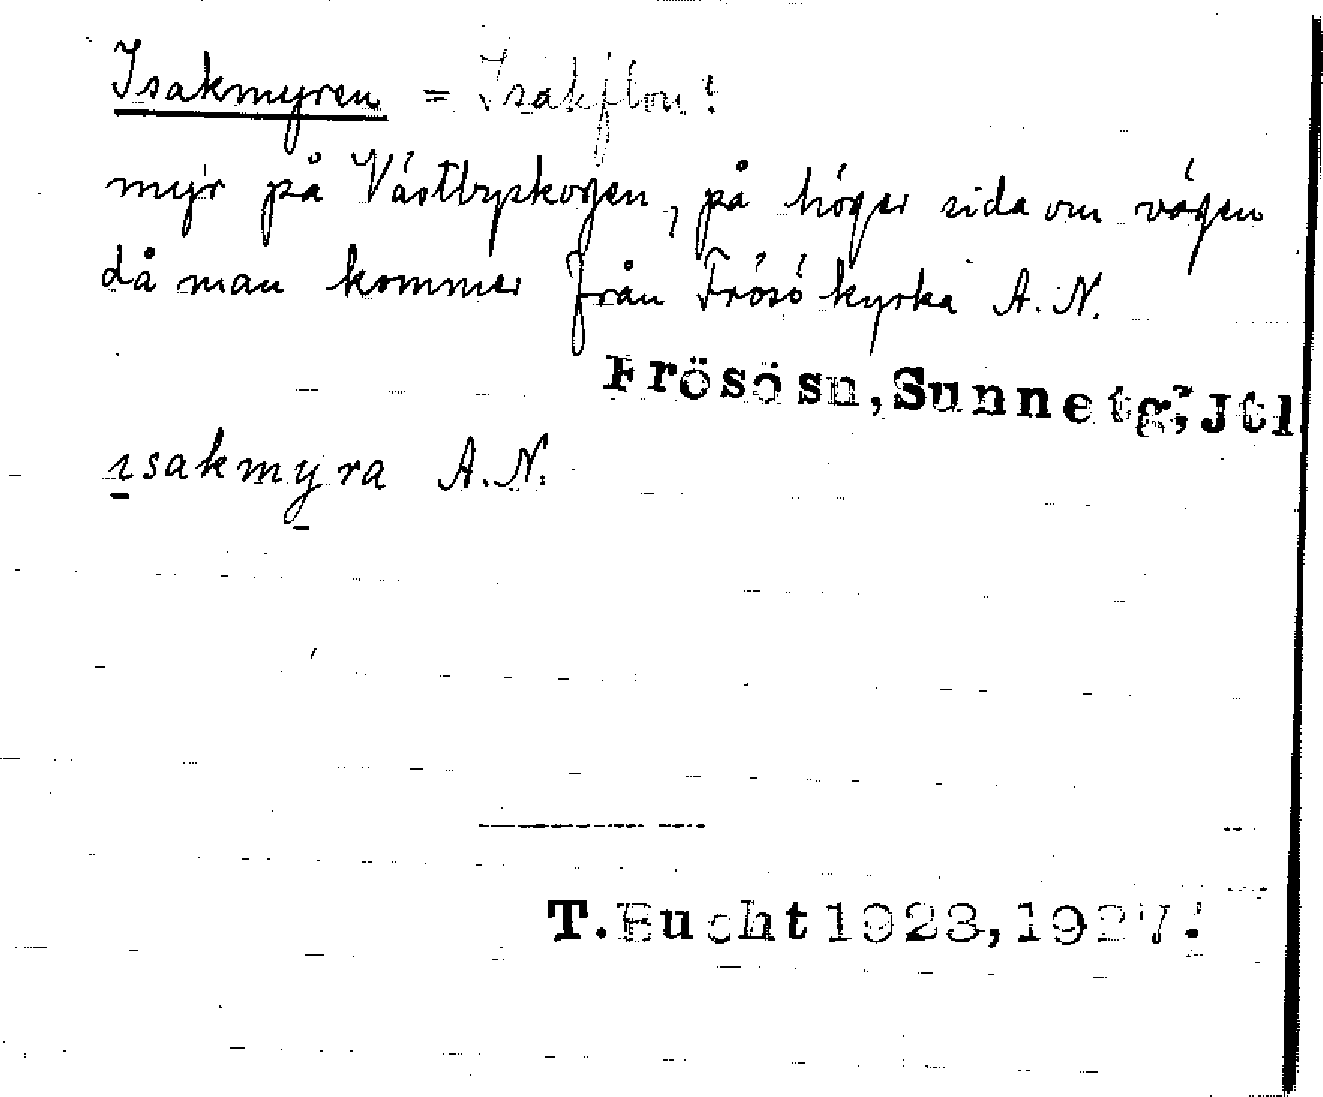 Isakmyren = Isakflon!
myr på Västbyskogen, på höger sida om vägen
då man kommer från Frösö kyrka A.N.
Frösö sn, Sunne tg, Jtl.
isakmyra A.N.
T. Bucht 1923, 1927.